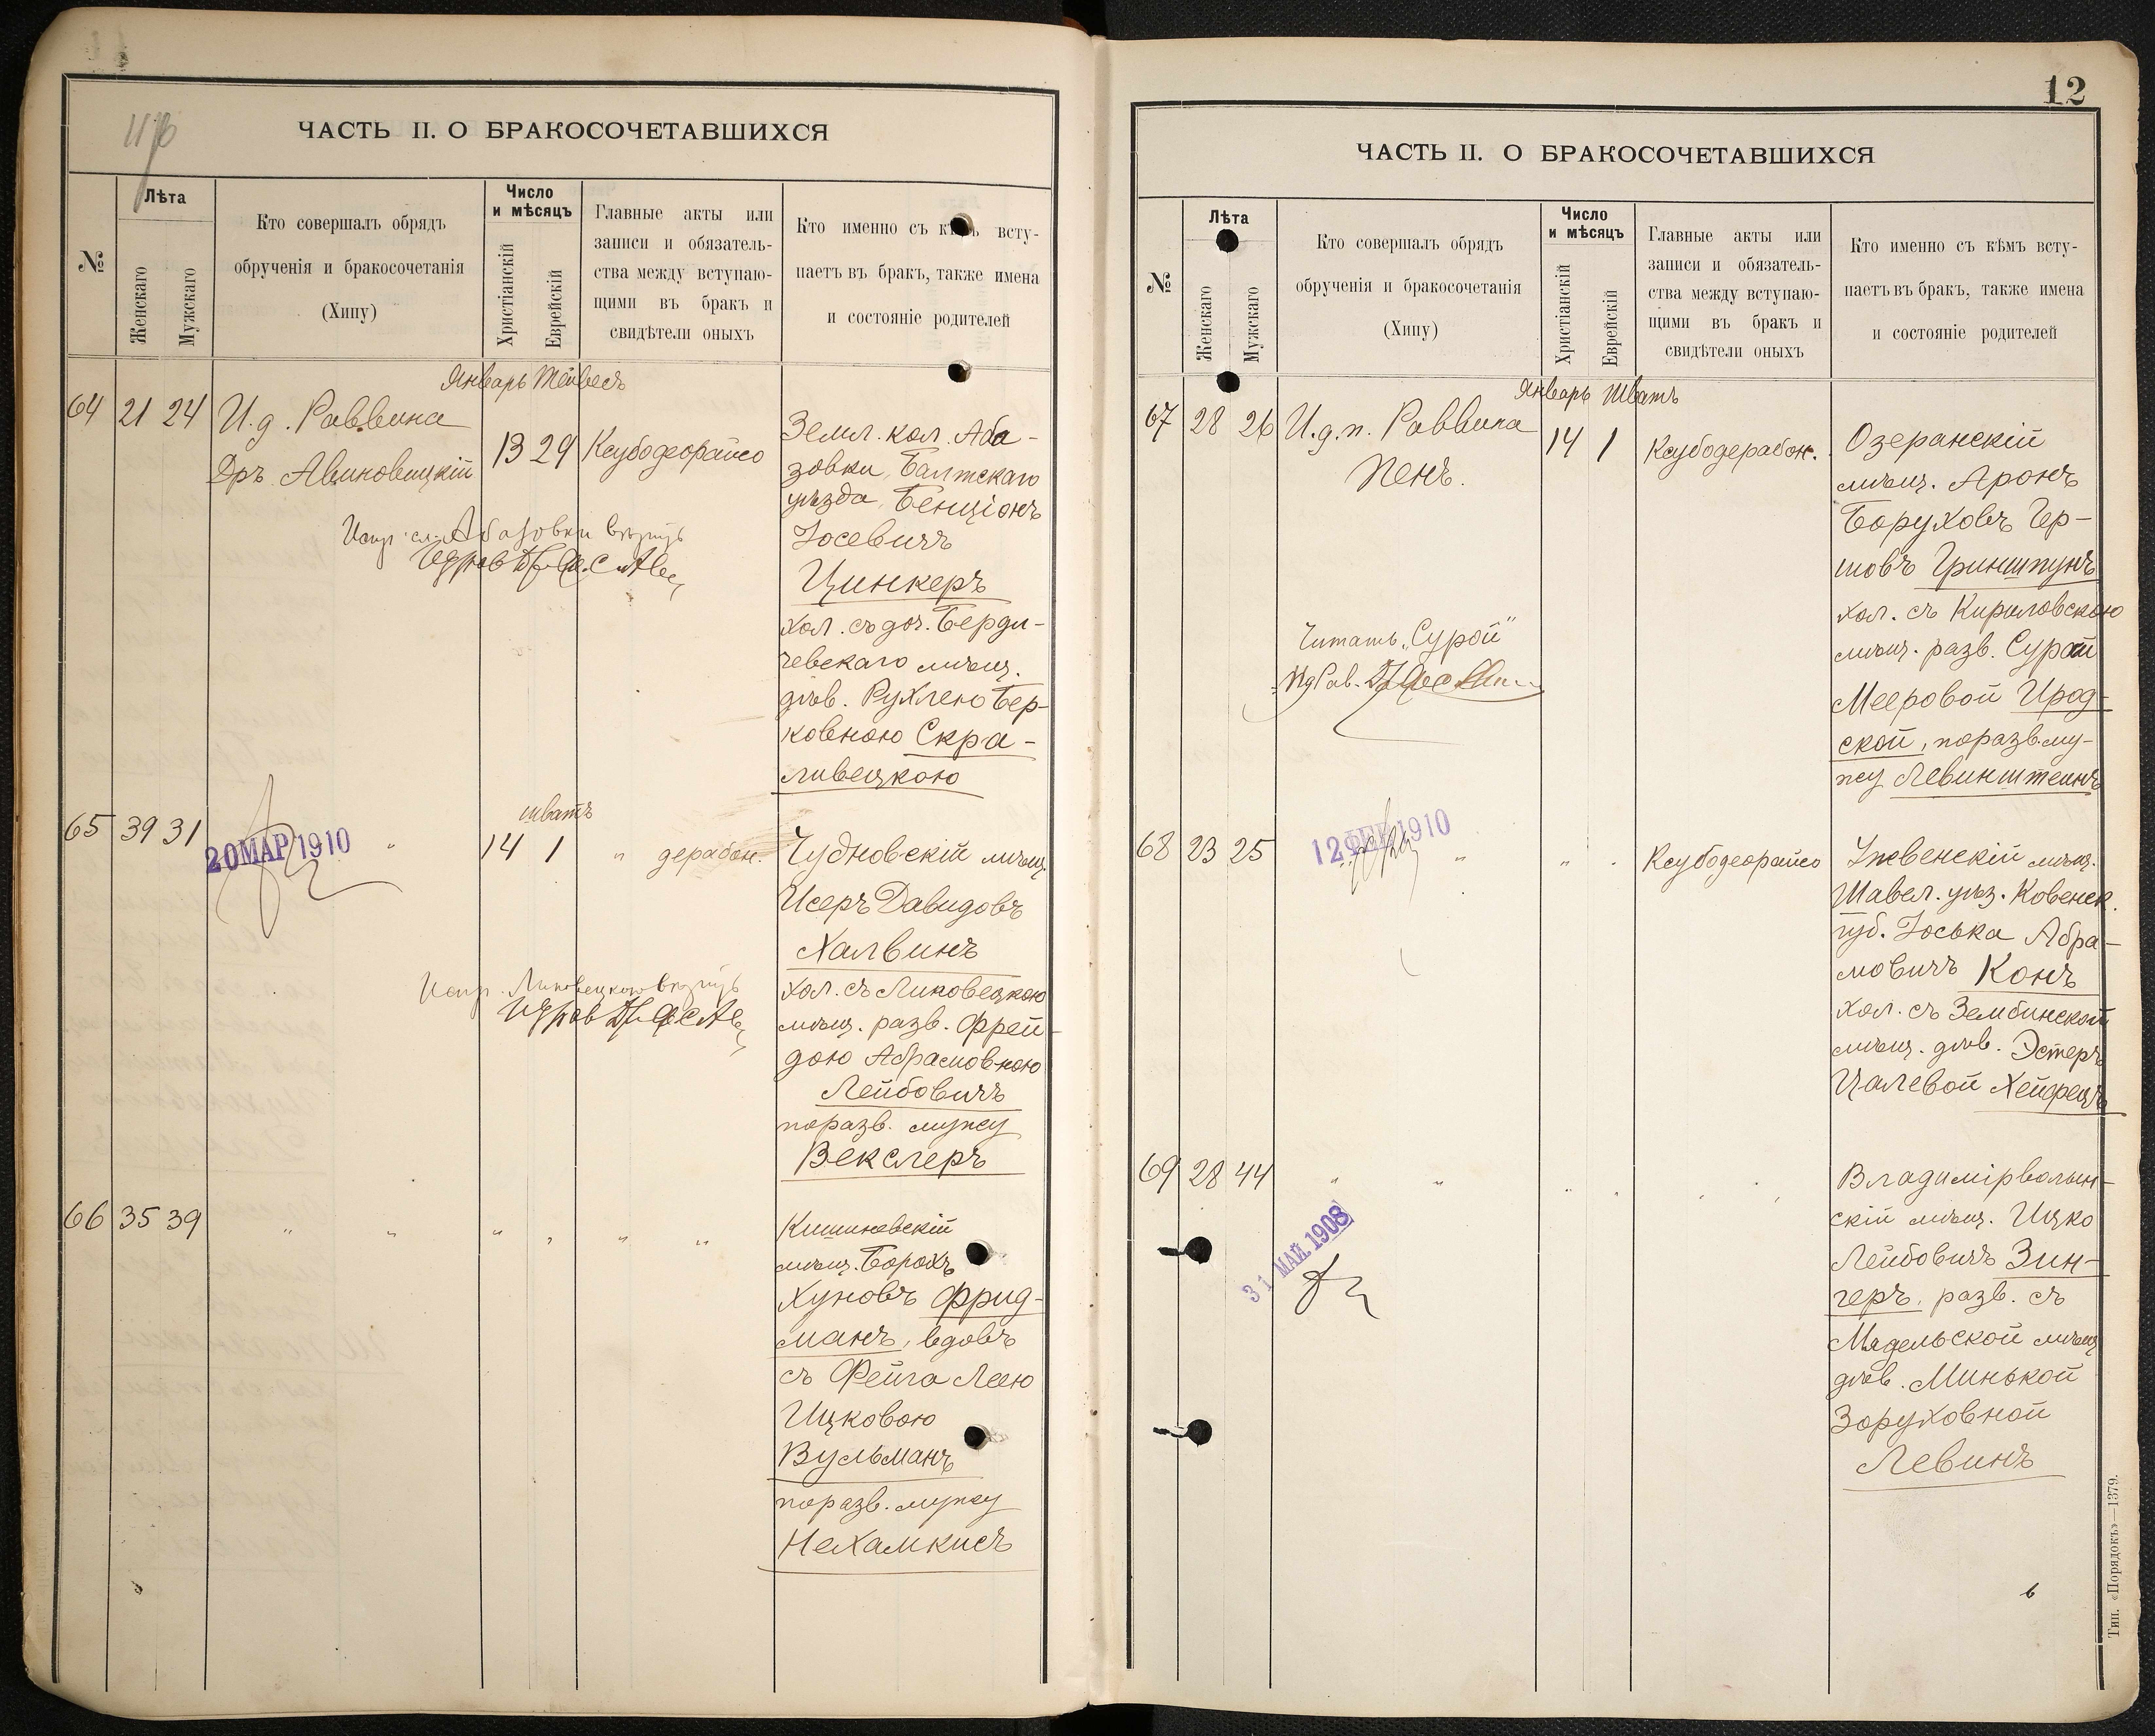 ЧАСТЬ II. О БРАКОСОЧЕТАВШИХСЯ
№
Лѣта
Женскаго
Мужскаго
Кто совершалъ обрядъ
обрученія и бракосочетанія
(Хипу)
Число
и мѣсяцъ
Христіанскій
Еврейскій
Главные акты или
записи и обязатель-
ства между вступаю-
щими въ бракъ и
свидѣтели оныхъ
Кто именно съ кѣмъ всту-
паетъ въ бракъ, также имена
и состояніе родителей
Январь Тейвесъ
64 21 24 И.д. Раввина
Дръ Авиновицкій
13 29 Ксубодеорайсо
Земл. кол. Аба-
зовки, Балтскаго
уѣзда, Бенціонъ
Іосевичъ
Цинкеръ
хол. съ доч. Берди-
чевскаго мѣщ.
дѣв. Рухлею Бер-
ковною Скра-
ливецкою
Абазовки
65 39 31 " "
20 МАР 1910
шватъ
14 1 " дерабон.
Чудновскій мѣщ.
Исеръ Давидовъ
Халвинъ
хол. съ Липовецкою
мѣщ. разв. Фрей-
дою Абрамовною
Лейбовичъ
по разв. мужу
Векслеръ
Липовецкою
66 35 39 " " " " " "
Кишиневскій
мѣщ. Борохъ
Хуновъ Фрид-
манъ, вдовъ
съ Фейга Леею
Ицковою
Вульманъ
по разв. мужу
Нехамкисъ
12
ЧАСТЬ II. О БРАКОСОЧЕТАВШИХСЯ
№
Лѣта
Женскаго
Мужскаго
Кто совершалъ обрядъ
обрученія и бракосочетанія
(Хипу)
Число
и мѣсяцъ
Христіанскій
Еврейскій
Главные акты или
записи и обязатель-
ства между вступаю-
щими въ бракъ и
свидѣтели оныхъ
Кто именно съ кѣмъ всту-
паетъ въ бракъ, также имена
и состояніе родителей
Январь Шватъ
67 28 26 И.д.п. Раввина
Пенъ.
14 1 Ксубодерабон.
Озеранскій
мѣщ. Аронъ
Боруховъ Гер-
шовъ Гринштунъ
хол. съ Кириловскою
мѣщ. разв. Сурой
Мееровой Ирод-
ской, по разв. му-
жу Левинштейнъ
Читать „Сурой"
68 23 25 " "
12 ФЕВ 1910
Ксубодеорайсо
Упевенскій мѣщ.
Шавел. уѣз. Ковенск.
губ. Іоська Абра-
мовичъ Конъ
хол. съ Зембинской
мѣщ. дѣв. Эстеръ
Цалевой Хейфецъ
69 28 44 " " " "
31 МАЙ 1908
Владимірволын-
скій мѣщ. Ицко
Лейбовичъ Зин-
геръ, разв. съ
Мядельской мѣщ
дѣв. Минькой
Зоруховной
Левинъ
6
Тип. «Порядокъ»—1379.